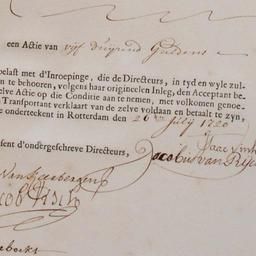 een Actie van vijf Duijzend Guldens
belast met d'Inroepinge, die de Directeurs, in tyd en wyle zul-
n te behooren, volgens haar origineelen Inleg, den Acceptant be
elve Actie op die Conditie aan te nemen, met volkomen genoe-
Transportant verklaart van de zelve voldaan en betaalt te zyn,
e onderteekent in Rotterdam den 26 July 1720
Isaac
sent d'ondergeschreve Directeurs, Jacobus van